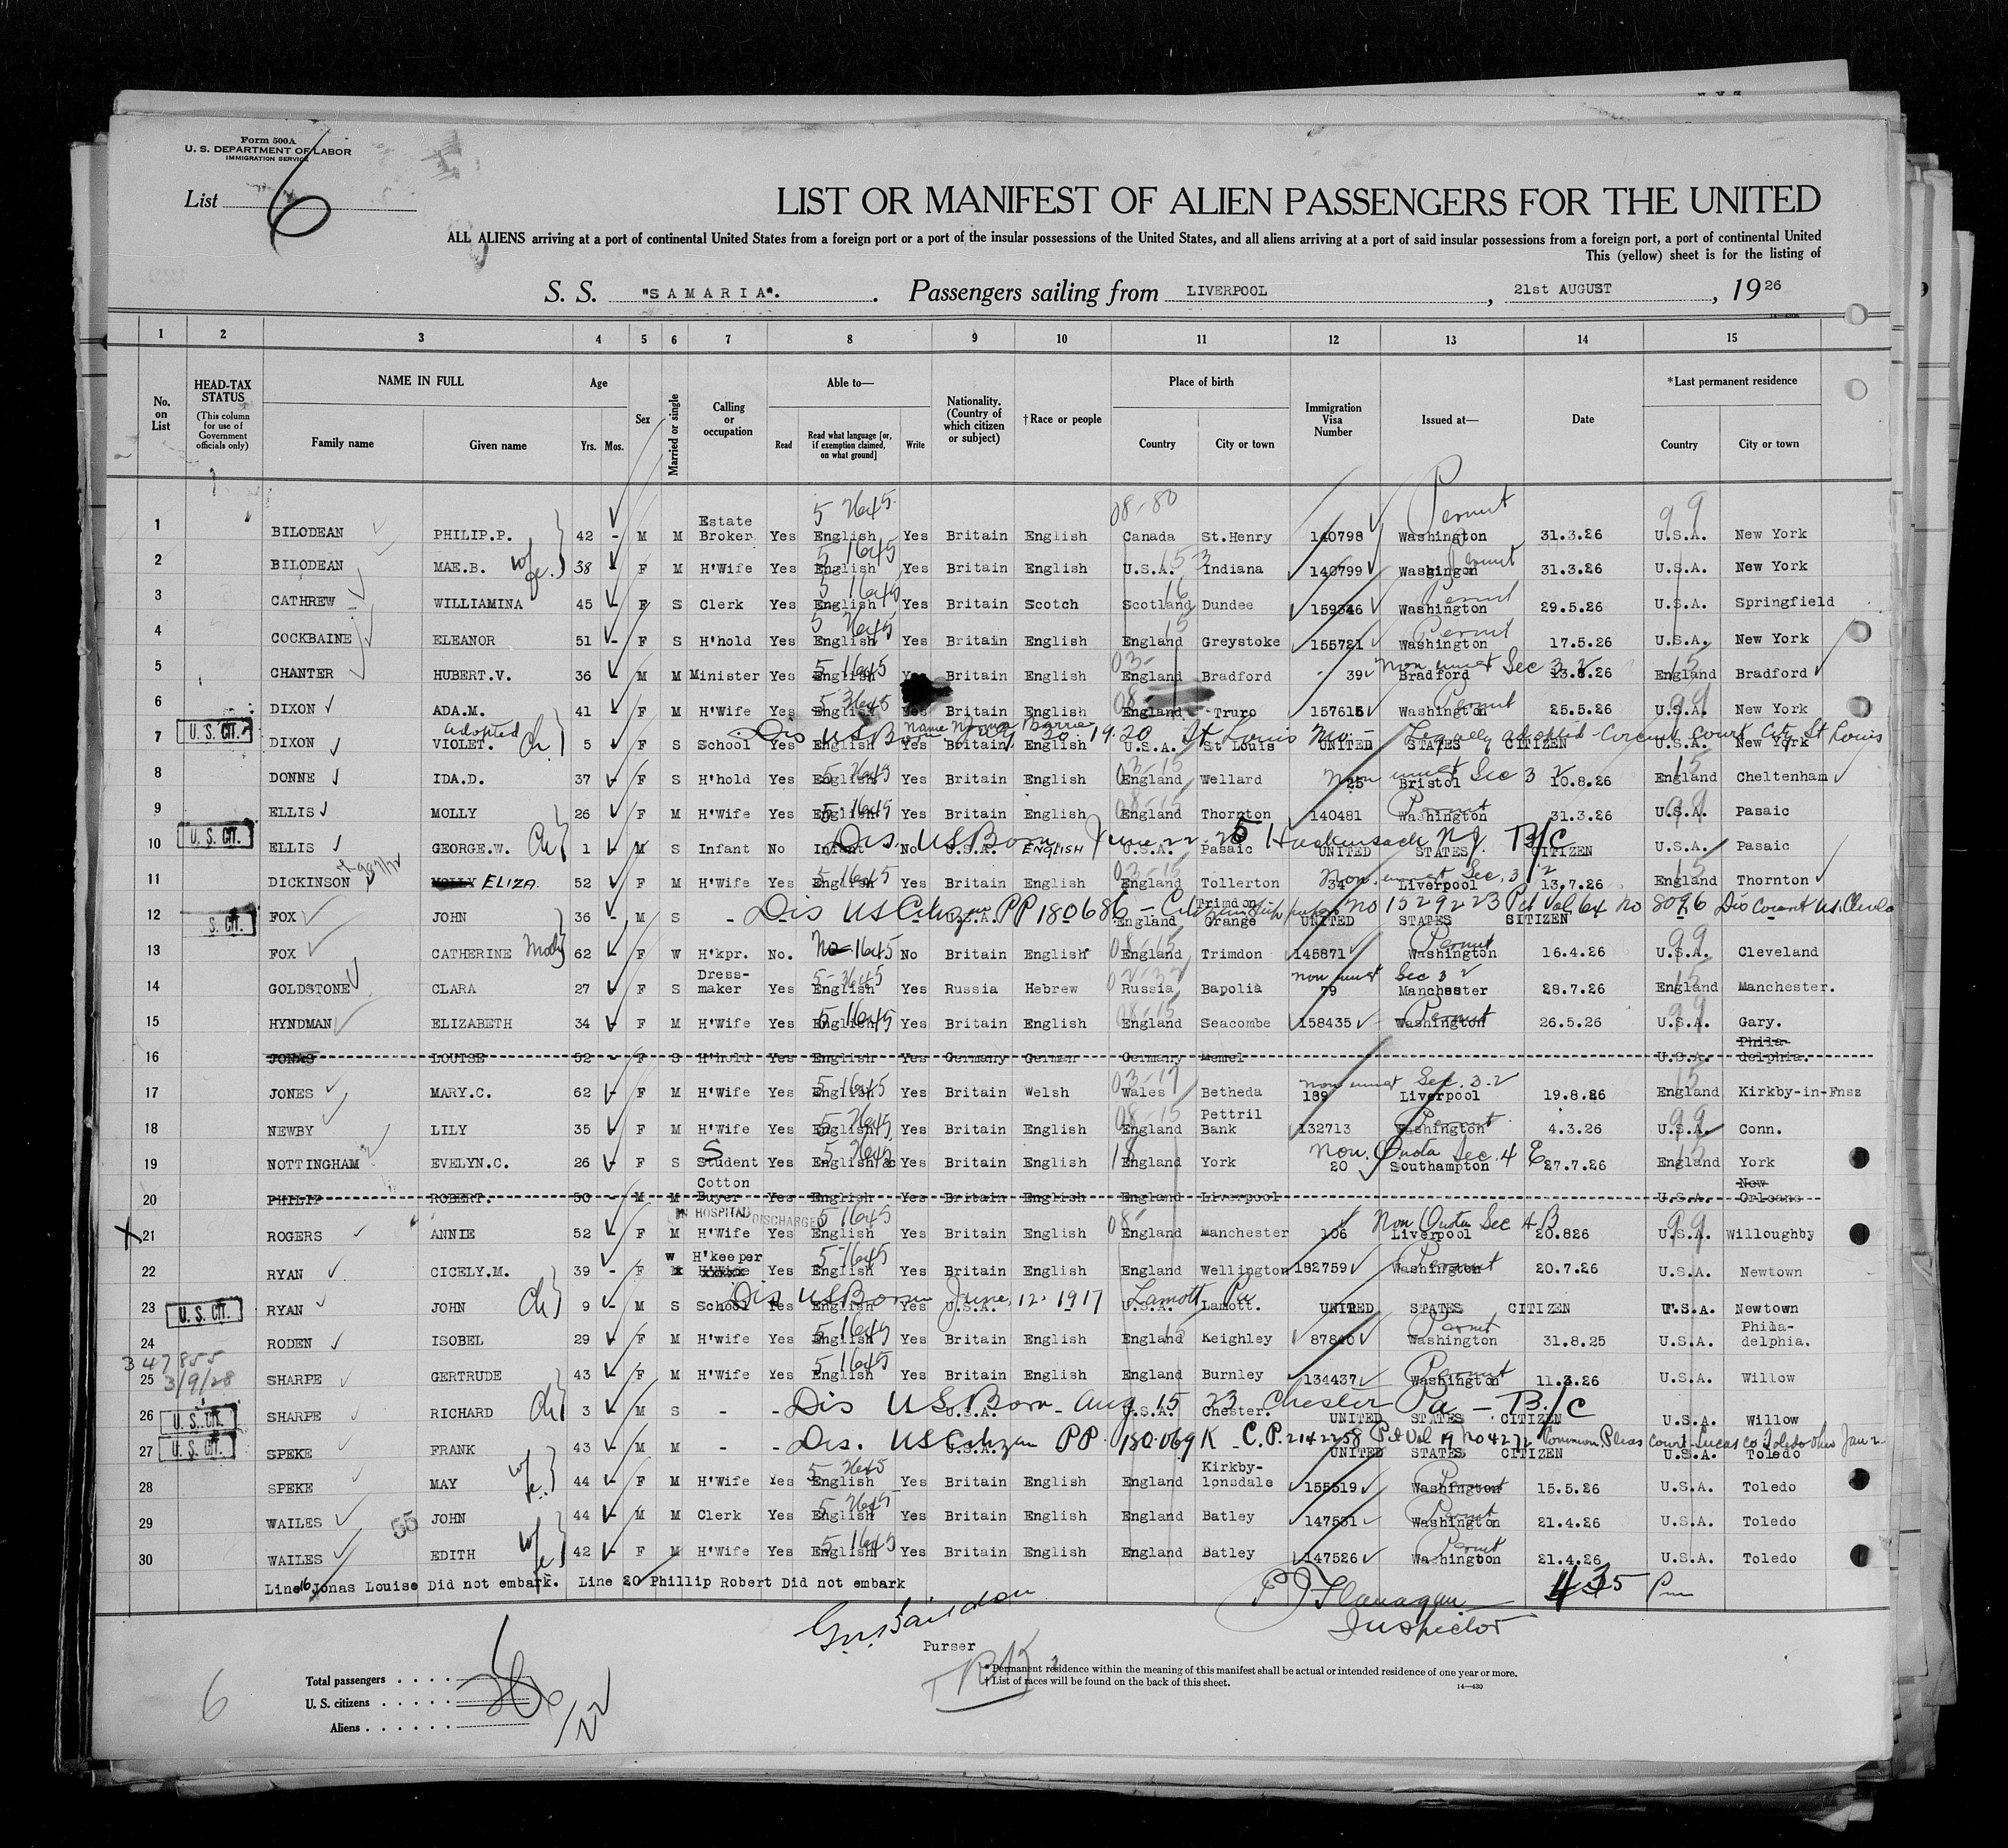 Form 500A
U. S. DEPARTMENT OF LABOR
IMMIGRATION SERVICE
List 6
LIST OR MANIFEST OF ALIEN PASSENGERS FOR THE UNITED
ALL ALIENS arriving at a port of continental United States from a foreign port or a port of the insular possessions of the United States, and all aliens arriving at a port of said insular possessions from a foreign port, a port of continental United
This (yellow) sheet is for the listing of
S. S. "SAMARIA". Passengers sailing from LIVERPOOL, 21st AUGUST, 1926
1 2 3 4 5 6 7 8 9 10 11 12 13 14 15
No. on List HEAD-TAX STATUS (This column for use of Government officials only) NAME IN FULL Family name Given name Age Yrs. Mos. Sex Married or single Calling or occupation Able to— Read Read what language [or, if exemption claimed, on what ground] Write Nationality. (Country of which citizen or subject) †Race or people Place of birth Country City or town Immigration Visa Number Issued at— Date *Last permanent residence Country City or town
1 BILODEAN PHILIP.P. 42 - M M Estate Broker Yes English Yes Britain English Canada St.Henry 140798 Washington Permit 31.3.26 U.S.A. New York
2 BILODEAN MAE.B. wife 38 F M H'Wife Yes English Yes Britain English U.S.A. Indiana 140799 Washington Permit 31.3.26 U.S.A. New York
3 CATHREW WILLIAMINA 45 - F S Clerk Yes English Yes Britain Scotch Scotland Dundee 159346 Washington Permit 29.5.26 U.S.A. Springfield
4 COCKBAINE ELEANOR 51 - F S H'hold Yes English Yes Britain English England Greystoke 155721 Washington Permit 17.5.26 U.S.A. New York
5 CHANTER HUBERT.V. 36 M M Minister Yes English Britain English England Bradford 39 Bradford Sec 3 2 13.8.26 England Bradford
6 DIXON ADA.M. 41 - F M H'Wife Yes English Yes Britain English England Truro 157615 Washington Permit 25.5.26 U.S.A. New York
U.S. CIT. 7 DIXON adopted VIOLET. Ch 5 F S School Yes English Yes Britain English U.S.A. St Louis UNITED STATES CITIZEN Legally adopted - Circuit Court City St Louis U.S.A. New York
8 DONNE IDA.D. 37 - F S H'hold Yes English Yes Britain English England Wellard 25 Bristol Sec 3 2 10.8.26 England Cheltenham
9 ELLIS MOLLY 26 - F M H'Wife Yes English Yes Britain English England Thornton 140481 Washington Permit 31.3.26 U.S.A. Pasaic
U.S. CIT. 10 ELLIS GEORGE.W. Ch 1 M S Infant No Infant No U.S.A. ENGLISH U.S.A. Pasaic Dis US Born June 22 25 Hackensack NJ. B/C UNITED STATES CITIZEN U.S.A. Pasaic
11 DICKINSON MOLLY ELIZA 52 F M H'Wife Yes English Yes Britain English England Tollerton 34 Liverpool Sec. 3/2 13.7.26 England Thornton
S. CIT. 12 FOX JOHN 36 - M S - Dis US Citizen PP 180686 U.S.A. England Trimdon Grange UNITED STATES CITIZEN
13 FOX CATHERINE Moth 62 - F W H'kpr. No. No No Britain English England Trimdon 145871 Washington Permit 16.4.26 U.S.A. Cleveland
14 GOLDSTONE CLARA 27 F S Dress-maker Yes English Yes Russia Hebrew Russia Bapolia 79 Manchester Sec 3 2 28.7.26 England Manchester.
15 HYNDMAN ELIZABETH 34 F M H'Wife Yes English Yes Britain English England Seacombe 158435 Washington Permit 26.5.26 U.S.A. Gary.
16 JONAS LOUISE 52 - F S H'hold Yes English Yes Germany German Germany Memel U.S.A. Phila-delphia.
17 JONES MARY.C. 62 - F M H'Wife Yes English Yes Britain Welsh Wales Betheda 189 Liverpool Sec. 3-2 19.8.26 England Kirkby-in-Fnsz
18 NEWBY LILY 35 F M H'Wife Yes English Yes Britain English England Pettril Bank 132713 Washington Permit 4.3.26 U.S.A. Conn.
19 NOTTINGHAM EVELYN.C. 26 - F S Student Yes English Yes Britain English England York 20 Southampton Non. Quota Sec. 4 E 27.7.26 England York
20 PHILIP ROBERT. 50 - M M Cotton Buyer Yes English Yes Britain English England Liverpool U.S.A. New Orleans
X 21 ROGERS ANNIE 52 F M IN HOSPITAL DISCHARGED H'Wife Yes English Yes Britain English England Manchester 106 Liverpool Non Quota Sec 4 B 20.826 U.S.A. Willoughby
22 RYAN CICELY.M. 39 - F W H'keeper Yes English Yes Britain English England Wellington 182759 Washington Permit 20.7.26 U.S.A. Newtown
U.S. CIT. 23 RYAN JOHN Ch 9 - M S School Yes English Yes U.S.A. U.S.A. Lamott. Dis US Born June, 12. 1917 Lamott Pa UNITED STATES CITIZEN U.S.A. Newtown
24 RODEN ISOBEL 29 F M H'wife Yes English Yes Britain English England Keighley 87840 Washington Permit 31.8.25 U.S.A. Phila-delphia.
347855
3/9/28
25 SHARPE GERTRUDE 43 - F M H'Wife Yes English Yes Britain English England Burnley 134437 Washington Permit 11.3.26 U.S.A. Willow
U.S. CIT. 26 SHARPE RICHARD Ch 3 M S - - Dis US Born - Aug 15 23 Chester Pa - B/C U.S.A. U.S.A. Chester. UNITED STATES CITIZEN U.S.A. Willow
U.S. CIT. 27 SPEKE FRANK 43 - M M - - Dis. US Citizen PP 180069 U.S.A. UNITED STATES CITIZEN Common Pleas Court Lucas Co Toledo Ohio Jan U.S.A. Toledo
28 SPEKE MAY wife 44 F M H'Wife Yes English Yes Britain English England Kirkby-lonsdale 155519 Washington Permit 15.5.26 U.S.A. Toledo
29 WAILES 55 JOHN 44 M M Clerk Yes English Yes Britain English England Batley 147531 Washington Permit 21.4.26 U.S.A. Toledo
30 WAILES EDITH wife 42 - F M H'Wife Yes English Yes Britain English England Batley 147526 Washington Permit 21.4.26 U.S.A. Toledo
Line 16 Jonas Louise Did not embark. Line 20 Phillip Robert Did not embark
P J Flanagan 435 Pm
Inspector
Purser
Total passengers
U. S. citizens
Aliens
6
*Permanent residence within the meaning of this manifest shall be actual or intended residence of one year or more.
†List of races will be found on the back of this sheet.
14—430